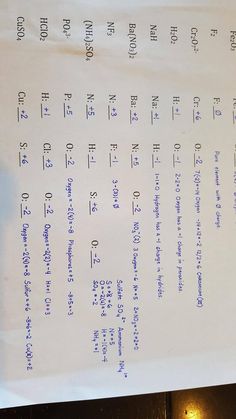 Fe₂O₃
F₂ F: Ø Pure element with Ø charge
Cr₂O₇²⁻ Cr: +6 O: -2 7(-2)=-14 Oxygen -14+12=-2 12/2=6 Chromium (VI)
H₂O₂ H: +1 O: -1 2-2=0 Oxygen has a -1 charge in peroxides
NaH Na: +1 H: -1 1-1=0 Hydrogen has a -1 charge in hydrides
Ba(NO₃)₂ Ba: +2 N: +5 O: -2 NO₃⁻ 3 Oxygen=-6 N=+5
NF₃ N: +3 F: -1 3-3(1)=Ø
(NH₄)₂SO₄ N: +5 H: -1 S: +6 O: -2
Sulfate SO₄²⁻ Ammonium NH₄⁺
S=+6 N=+5
O=-2(4)=-8 H=-1(4)=-4
SO₄=-2 NH₄=+1
PO₄³⁻ P: +5 O: -2 Oxygen=-2(4)=-8 Phosphorus=+5 -8+5=-3
HClO₂ H: +1 Cl: +3 O: -2 Oxygen=-2(2)=-4 H=+1 Cl=+3
CuSO₄ Cu: +2 S: +6 O: -2 Oxygen=-2(4)=-8 Sulfur=+6 -8+6=-2 Cu(II)=+2